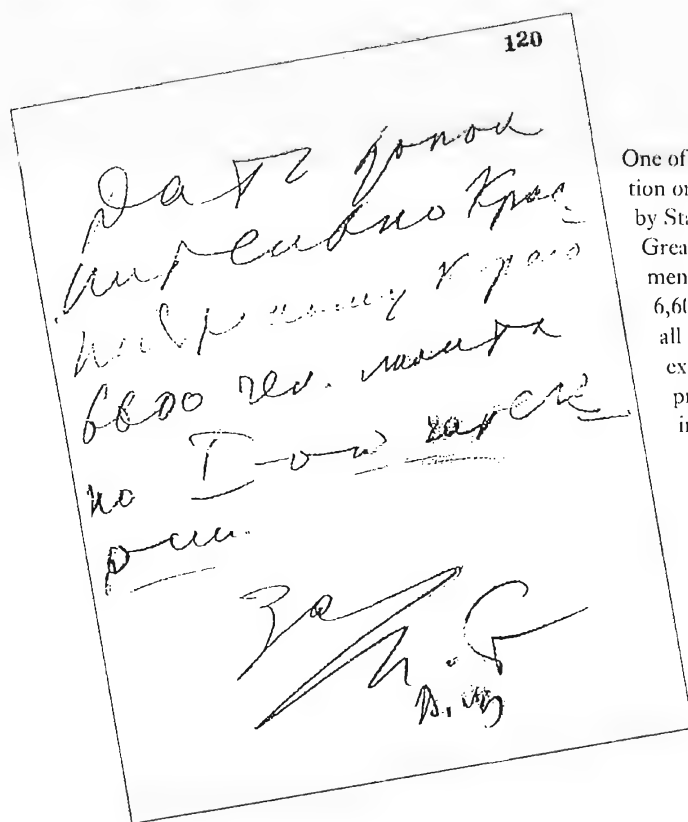 120
Дать допол
нительно Крас-
ноярскому краю
6600 чел. лимита
по I-ой категo
рии.
За
One of
tion or
by Sta
Grea
men
6,60
all
ex
pr
in